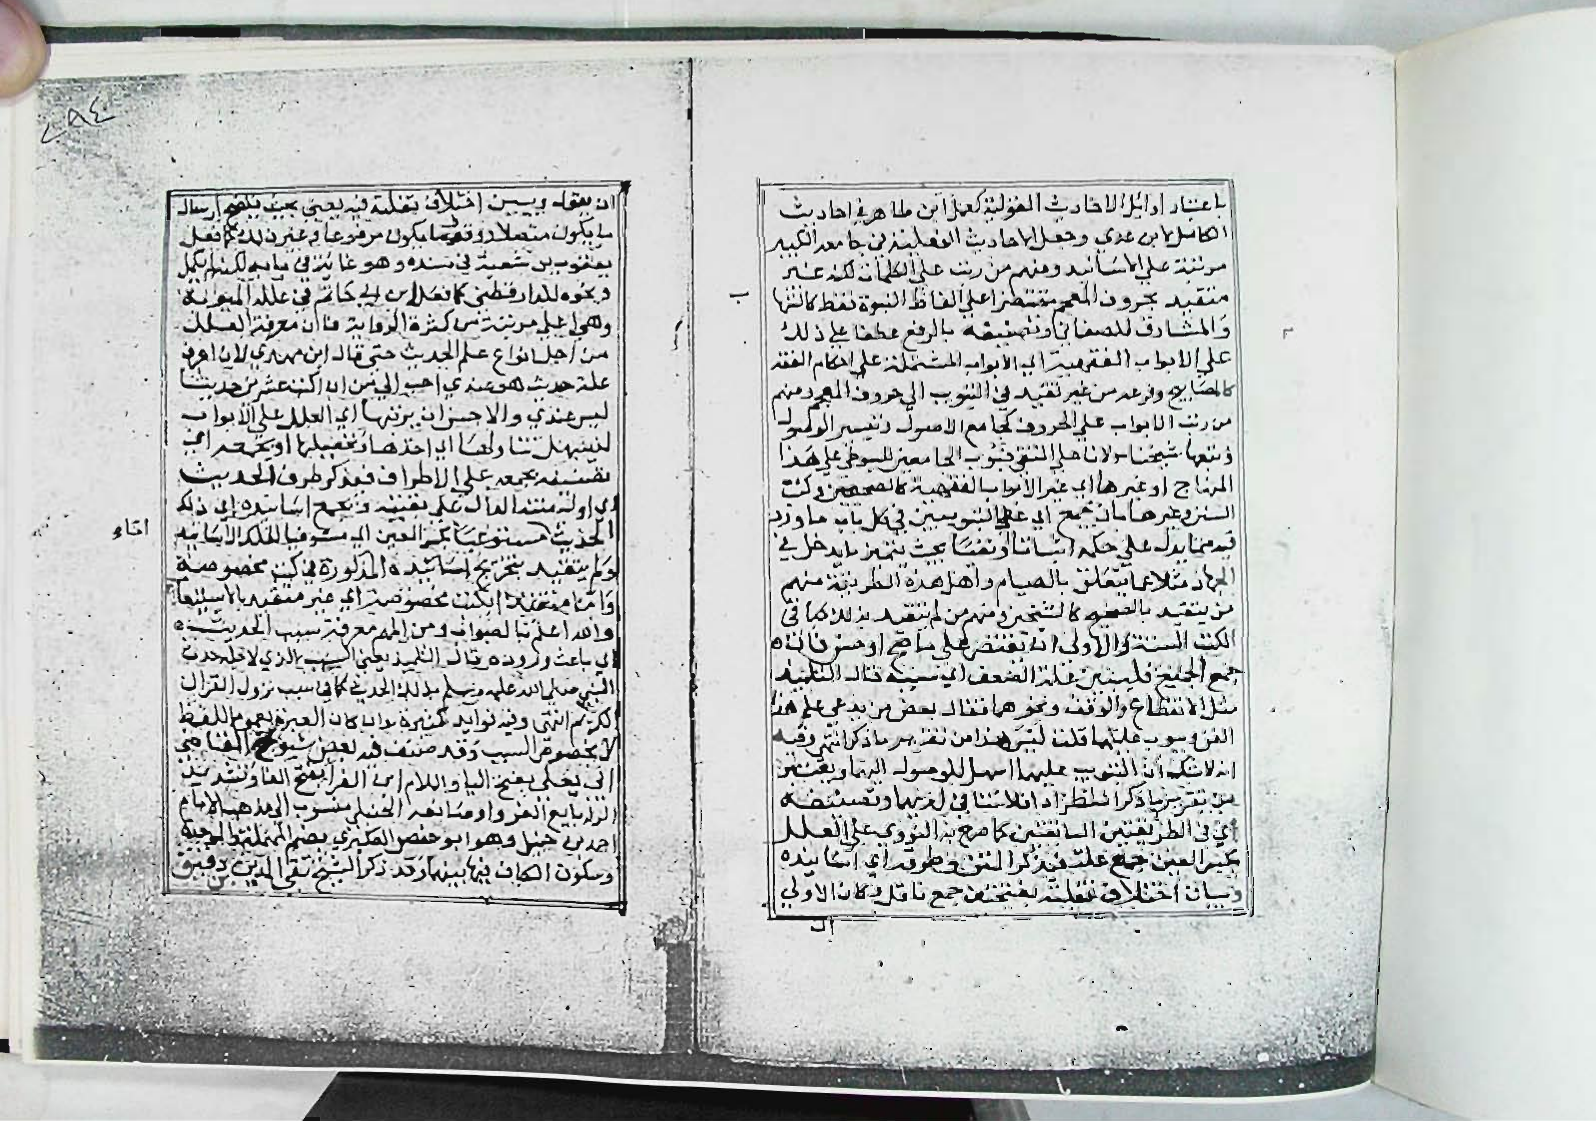 باعتبار اوائل الاحاديث القولية كعمل ابن طاهر في احاديث
الكامل لابن عدي وجعل الاحاديث الفعلية في جامعه الكبير
مرتبة علي المسانيد ومنهم من رتب علي الكلمات لكنه غير
متقيد بحروف المعجم مقتصرا علي الفاظ النبوة فقط كالشهاب
والمشارق للصغاني وتصنيفه بالرفع عطفا علي ذلك
علي الابواب الفقهية اي الابواب المشتملة علي احكام الفقه
كالمصابيح وفرعه من غير تقيد في التبويب الي حروف المعجم ومنهم
من رتب الابواب علي الحروف كجامع الاصول وتيسير الوصول
وتبعها شيخنا مولانا علي المتقي فبوب الجامعين للسيوطي علي هذا
المنهاج او غيرها اي غير الابواب الفقهية كالصحيحين وكتب
السنن وغيرها بان يجمع اي علي التبويبين في كل باب ما ورد
فيه مما يدل علي حكمه اثباتا او نفيا بحيث يتميز ما يدخل في
الجهاد مثلا عما يتعلق بالصيام واهل هذه الطريقة منهم
من يتقيد بالصحيح كالشيخين ومنهم من لم يتقيد بذلك كباقي
الكتب الستة والاولي ان يقتصر علي ما صح او حسن فان
جمع الجميع فليبين علة الضعف اي سببه قال التلميذ
مثل الانقطاع والوقف ونحوهما فقال بعض من يدعي علم هذا
الفن وبوب عليها قلت ليس هذا من تقرير ما ذكر انتهي وفيه
انه لا شك ان التبويب عليها اسهل للوصول اليها ويعتبر
من تقرير ما ذكر استطرادا فلا ينافي لغيرها وتصنيفه
اي في الطريقتين السابقتين كما صرح به النووي علي العلل
بكسر العين جمع علة فيذكر المتن وطرقه اي اسانيده
وبيان اختلاف نقلته بفتحتين جمع ناقل وكان الاولي
ان
ب
٢٨٤
ان يقول ويبين اختلاف نقلته فيه يعني بحيث يتضح ارسال
ما يكون متصلا ووقف ما يكون مرفوعا وغير ذلك كما فعل
يعقوب بن شعبة في مسنده وهو غاية في بابه لكنه لم يكمل
ونحوه للدارقطني كما فعل ابن ابي حاتم في علله المبوبة
وهي اعلي مرتبة من كثرة الرواية فان معرفة العلل
من اجل انواع علم الحديث حتي قال ابن مهدي لان اعرف
علة حديث هو عندي احب الي من ان اكتب عشرين حديثا
ليس عندي والاحسن ان يرتبها اي العلل علي الابواب
ليسهل تناولها اي اخذها وتحصيلها او يجمعه اي
تصنيفه بجمعه علي الاطراف فيذكر طرف الحديث
اي اوله منه الدال علي بقيته ويجمع اسانيده اي ذلك
الحديث مستوعبا بكسر العين اي مستوفيا لتلك الاسانيد
ولم يتقيد بتخريج اسانيده المذكورة في كتب مخصوصة
واما متقيدا بكتب مخصوصة اي غير متقيد بالاستيعاب
والله اعلم بالصواب ومن المهم معرفة سبب الحديث
اي باعث وروده قال التلميذ يعني السبب الذي لاجله حدث
النبي صلي الله عليه وسلم بذلك الحديث كما في سبب نزول القران
الكريم انتهي وفيه فوايد كثيرة لان كان العبرة بعموم اللفظ
لا بخصوص السبب وقد صنف فيه بعض شيوخ القاضي
ابي يعلي بفتح اليا واللام ابن الفرا بفتح الفا وتشديد
الرا بايع الفرو او صانعه الحنبلي منسوب الي مذهب الامام
احمد بن حنبل وهو ابو حفص العكبري بضم المهملة والموحدة
وسكون الكاف فيما بينهما وقد ذكر الشيخ تقي الدين بن دقيق